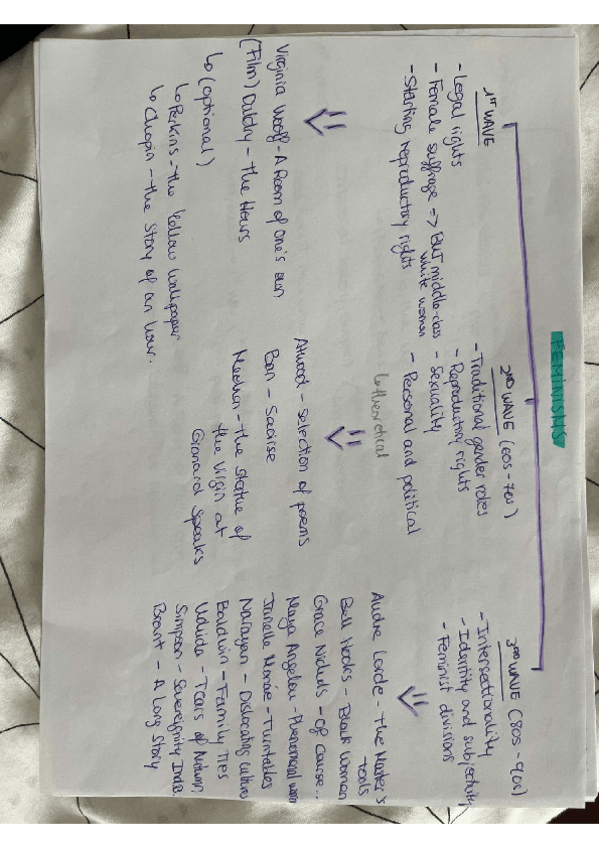 FEMINISMS
1ST WAVE
- Legal rights
- Female suffrage => BUT middle-class
white women
- Starting reproductory rights
Virginia Woolf - A Room of One's own
(Film) Daldry - The Hours
↳ (optional)
↳ Perkins - the Yellow Wallpaper
↳ Chopin - the Story of an hour.
2ND WAVE (60s - 70s)
- Traditional gender roles
- Reproductory rights
- Sexuality
- Personal and political
↳ theoretical
Atwood - selection of poems
Ban - Saoirse
Meehan - the statue of
the virgin at
Granard Speaks
3RD WAVE (80s - 90s)
- Intersectionality
- Identity and subjectivity
- Feminist divisions
Audre Lorde - The Master's
Tools
Bell Hooks - Black Women
Grace Nichols - Of Course...
Maya Angelou - Phenomenal
Janelle Monáe - Turntables
Narayan - Dislocating cultures
Baldwin - Family Ties
Uduida - Tears of Autumn
Simpson - Sovereignty
Brant - A Long Story